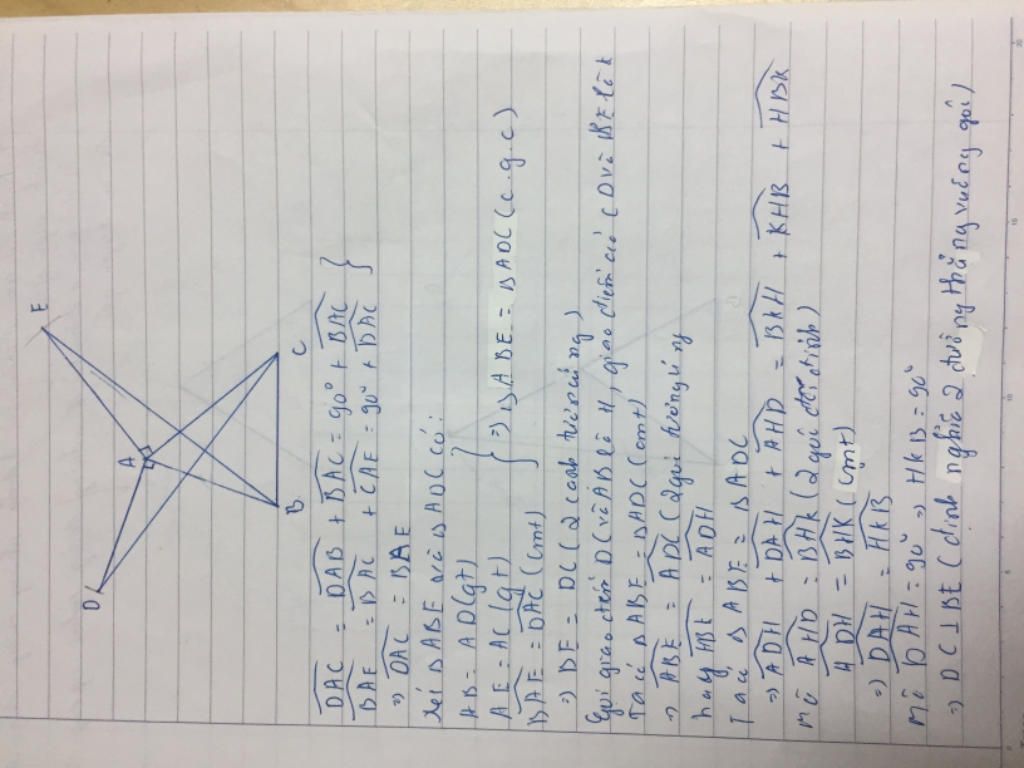 E
A
D
B
C
DAC = DAB + BAC = 90° + BAC
BAE = BAC + CAE = 90° + DAC }
=> DAC = BAE
Xét ΔABE và ΔADC có:
AB = AD (gt)
AE = AC (gt) } => ΔABE = ΔADC (c.g.c)
BAE = DAC (cmt)
=> BE = DC (2 cạnh tương ứng)
Gọi giao điểm DC và AB là H, giao điểm của CD và BE là K
Ta có ΔABE = ΔADC (cmt)
=> ABE = ADC (2 góc tương ứng
hay HBE = ADH
Ta có ΔABE = ΔADC
=> ADH + DAH + AHD = BKH + KHB + HBK
mà AHD = BHK (2 góc đối đỉnh)
ADH = BHK (cmt)
=> DAH = HKB
Mà DAH = 90° => HKB = 90°
=> DC ⊥ BE (định nghĩa 2 đường thẳng vuông góc)